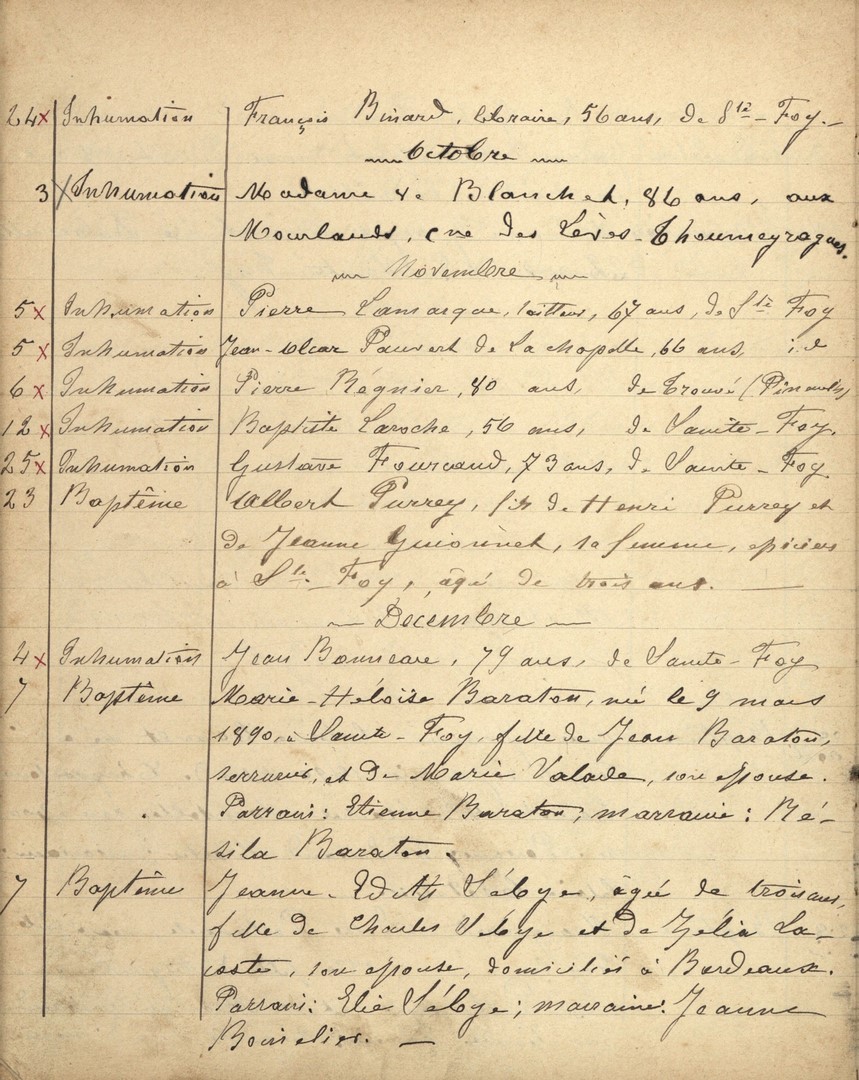 24 x Inhumation François Binard, libraire, 56 ans, de Ste-Foy.-
Octobre
3 x Inhumation Madame de Blanchet, 86 ans, aux
Mourlauds, cne des Lèves-Thoumeyragues.
Novembre
5 x Inhumation Pierre Lamarque, tailleur, 67 ans, de Ste Foy
5 x Inhumation Jean-Alcar Pauvert de La chapelle, 66 ans, id
6 x Inhumation Pierre Régnier, 80 ans, de Trouvé (Pineuilh)
12 x Inhumation Baptiste Laroche, 56 ans, de Sainte-Foy.
25 x Inhumation Gustave Fourcaud, 73 ans, de Sainte-Foy
23 Baptême Albert Purrey, fils de Henri Purrey et
de Jeanne Guionnet, sa femme, épiciers
à Ste-Foy, âgé de trois ans. —
— Décembre —
4 x Inhumation Jean Bonneare, 79 ans, de Sainte-Foy
7 Baptême Marie-Héloïse Baraton, née le 9 mars
1890, à Sainte-Foy, fille de Jean Baraton,
serrurier, et de Marie Valade, son épouse.
Parrain: Etienne Baraton; marraine: Ré-
sila Baraton.
7 Baptême Jeanne-Edith Sébye, âgée de trois ans,
fille de Charles Sébye et de Zélia La-
coste, son épouse, domiciliés à Bordeaux.
Parrain: Elie Sébye; marraine: Jeanne
Boiselier. —